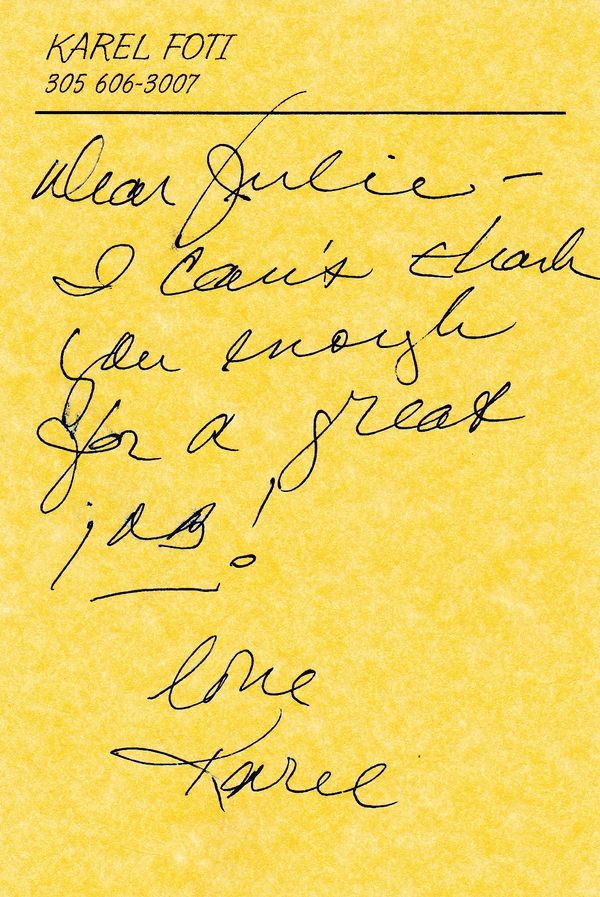 KAREL FOTI
305 606-3007
Dear Julie -
I can't thank
you enough
for a great
job!
love
Karel